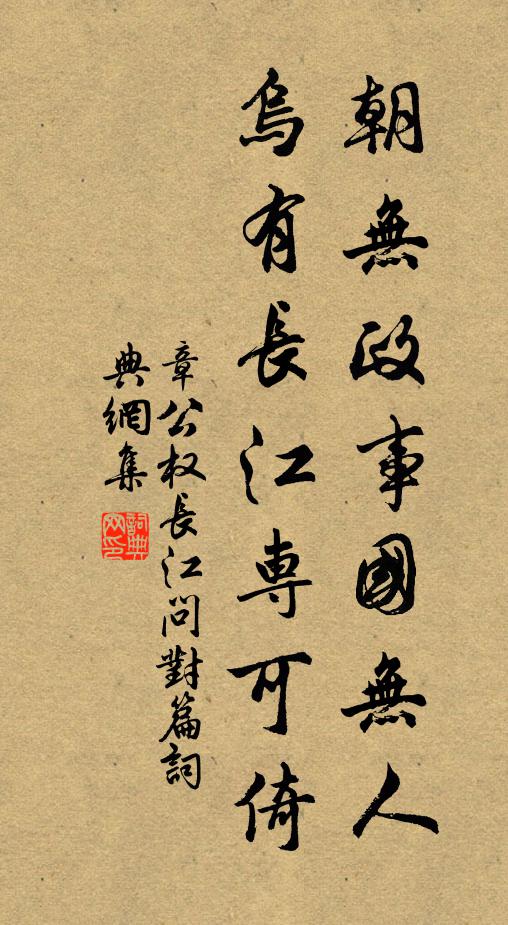 朝無政事國無人
烏有長江專可倚
章公权長江問對篇詞
典網集
詞典
网印